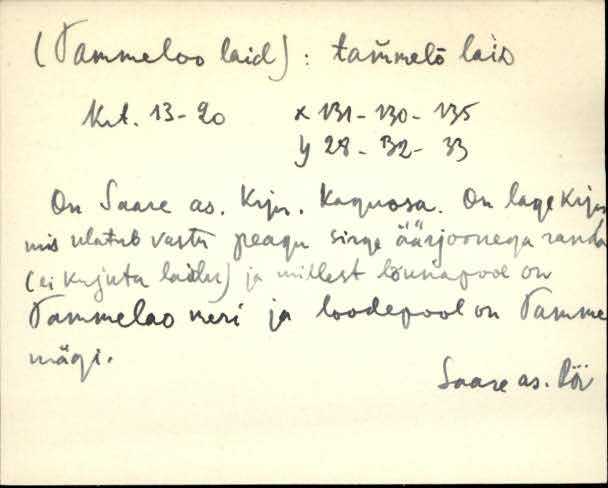 (Tammeloo laid) : tam̆melō laiD
Krt. 13-20 x 131-130-135
y 28-32-33
On Saare as. Krjn. Kaguosa. On lage Krjn
mis ulatub vastu peagu sirge äärjoonega randa
(ei kujuta laidu) ja millest lõunapool on
Tammelao neri ja loodepool on Tamme
mägi.
Saare as.